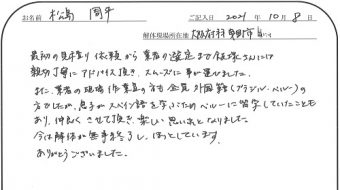 お名前 松島 周平 ご記入日 2021年10月8日
解体現場所在地 大阪府 市
最初の見積り依頼から業者の選定まで 様さんには
親切丁寧にアドバイス頂き、スムーズに事が運びました。
また、業者の現場作業員の方も全員外国籍（ブラジル・ペルー）の
方でしたが、息子がスペイン語を学ぶためペルーに留学していたことも
あり、仲良くさせて頂き、楽しい思い出となりました。
今は解体が無事終了し、ほっとしています。
ありがとうございました。